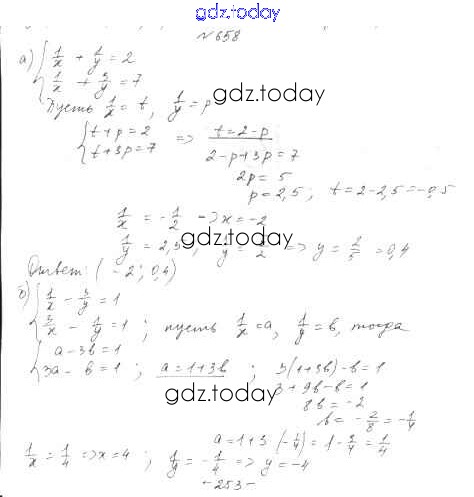 gdz.today
№658
а) { 1/x + 1/y = 2
1/x + 3/y = 7
Пусть 1/x = t, 1/y = p
gdz.today
{ t+p=2 => t=2-p
t+3p=7
2-p+3p=7
2p=5
p=2,5; t=2-2,5=-0,5
1/x = -1/2 -> x=-2
gdz.today
1/y = 2,5; 1/y = 5/2 => y = 2/5 = 0,4
Ответ: (-2; 0,4)
б) { 1/x - 3/y = 1
3/x - 1/y = 1; пусть 1/x = a, 1/y = b, тогда
{ a-3b=1
3a-b=1; a=1+3b; 3(1+3b)-b=1
gdz.today
3+9b-b=1
8b=-2
b = -2/8 = -1/4
a=1+3·(-1/4)=1-3/4=1/4
1/x = 1/4 => x=4; 1/y = -1/4 => y=-4
-253-